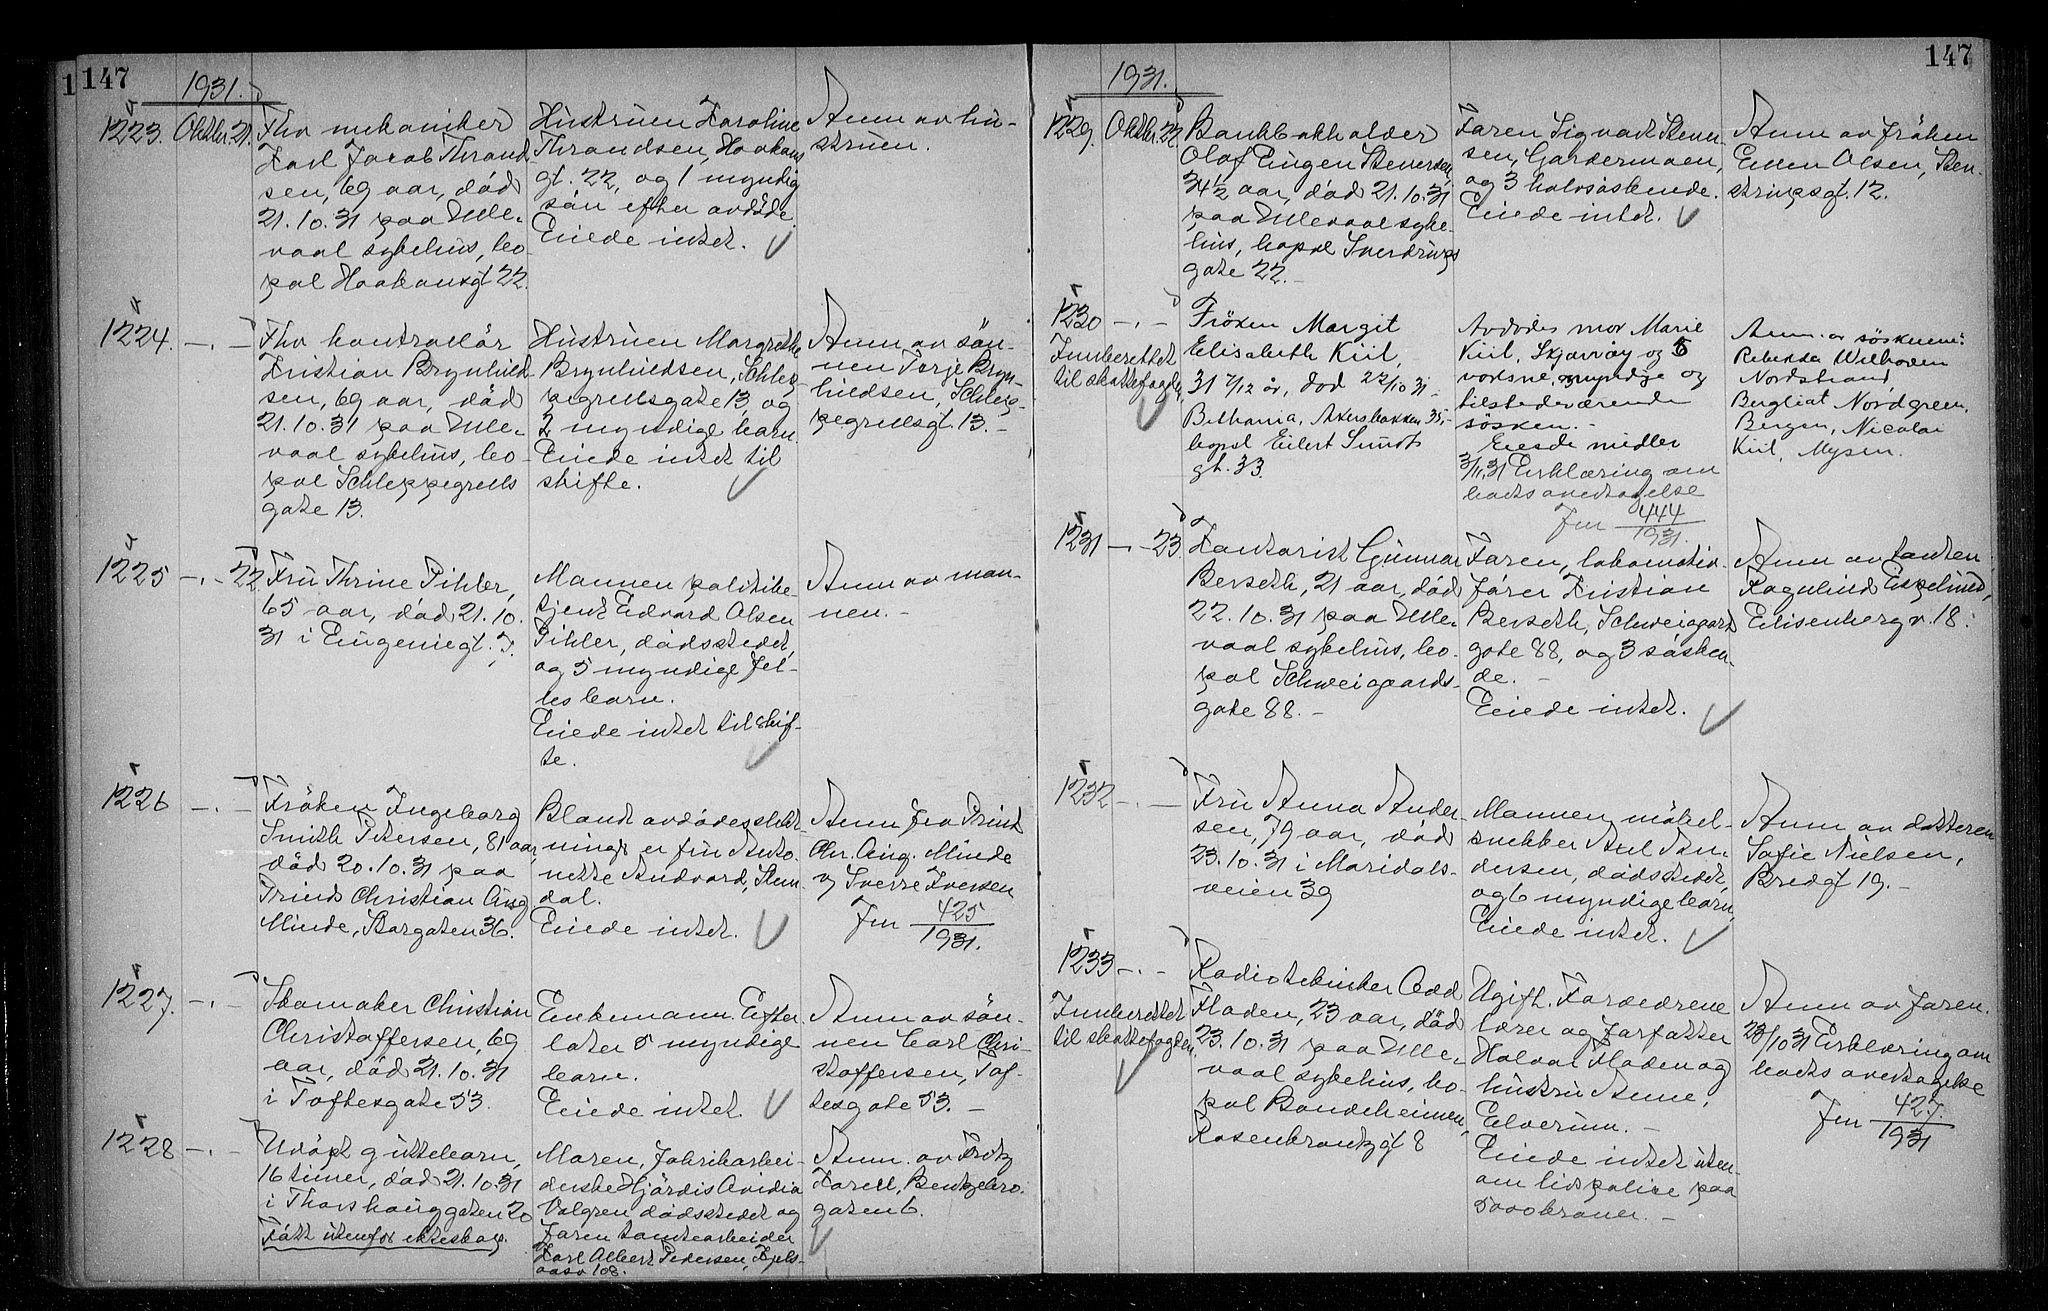 147
1931.
1223. Oktbr. 21.
Fhv mekaniker
Karl Jacob Thrand
sen, 69 aar, død
21.10.31 paa Ulle-
vaal sykehus, bo-
pæl Haakonsgt 22.
Hustruen Karoline
Thrandsen, Haakons
gt. 22, og 1 myndig
søn efter avdøde.
Eiede intet.
Anm av hu-
struen.
1224. -"-
Fhv kontrollør
Kristian Brynhild
sen, 69 aar, død
21.10.31 paa Ulle-
vaal sykehus, bo-
pæl Schleppegrells
gate 13.
Hustruen Margrethe
Brynhildsen, Schlep-
pegrellsgate 13, og
2 myndige barn.
Eiede intet til
skifte.
Anm av søn-
nen Torje Bryn-
hildsen, Schlep-
pegrellsgt. 13.-
1225 -"- 22
Fru Thrine Pihler,
65 aar, død 21.10.
31 i Eugeniegt. 7.
Mannen politibe-
tjent Edvard Olsen
Pihler, dødsstedet,
og 5 myndige fel-
les barn.
Eiede intet til skif-
te.
Anm av man-
nen.-
1226 -"-
Frøken Ingeborg
Smith Petersen, 81 aar,
død 20.10.31 paa
Trinds Christian Aug
Minde, Storgaten 36.
Blandt avdødes slekt-
ninger er fru Anto-
nette Andvord, Stem-
dal.
Eiede intet.
Anm fra Trinds
Chr. Aug. Minde
v Sverre Iversen
Jnr 425
1931.
1227. -"-
Skomaker Christian
Christoffersen, 69
aar, død 21.10.31
i Toftesgate 53.
Enkemann. Efter-
later 5 myndige
barn.
Eiede intet.
Anm av søn-
nen Carl Chri-
stoffersen, Tof-
tesgate 53.-
1228 -"-
Udøpt guttebarn,
16 timer, død 21.10.31
i Thorshauggaten 20
Født utenfor ekteskap.
Moren, fabrikarbei-
derske Hjørdis Ovidia
Valgren dødsstedet og
faren tomtearbeider
Karl Albert Pedersen, Kjels-
aasv 108.
Anm. av Fritz
Karell, Bentzebro
gaten 6.
147
1931.
1229. Oktbr. 22
Bankbokholder
Olaf Eugen Stenersen,
34½ aar, død 21.10.31
paa Ullevaal syke-
hus, bopæl Sverdrups
gate 22.-
Faren Sigvart Stener-
sen, Gardermoen,
og 3 halvsøskende.
Eiede intet.
Anm av frøken
Ellen Olsen, Sten-
strupsgt. 12.
1230 -"-
Innberettet
til skattefogden
Frøken Margit
Elisabeth Kiil,
31 7/12 år, død 22/10 31
Bethania, Akersbakken 35,-
bopæl Eilert Sundts
gt. 33.
Avdødes mor Marie
Kiil, Skjervøy og 5
voksne, myndige og
tilstedeværende
søsken.-
Eiede midler
3/11.31 Erklæring om
boets overtagelse
Jnr 444
1931.
Anm. av søsknene:
Rebekka Welhaven
Nordstrand,
Bergliot Nordgreen,
Bergen, Nicolai
Kiil, Mysen.
1231 -"- 23.
Kontorist Gunnar
Berseth, 21 aar, død
22.10.31 paa Ulle-
vaal sykehus, bo-
pæl Schweigaards-
gate 88.-
Faren, lokomotiv-
fører Kristian
Berseth, Schweigaards
gate 88, og 3 søsken-
de.-
Eiede intet.
Anm av tanten
Ragnhild Eispelund,
Elisenberg v. 18.
1232 -"-
Fru Anna Ander-
sen, 79 aar, død
23.10.31 i Maridals-
veien 39
Mannen møbel-
snekker Axel An-
dersen, dødsstedet,
og 6 myndige barn.
Eiede intet.
Anm av datteren
Sofie Nielsen,
Bredgt 19.-
1233 -"-
Innberettet
til skattefogden
Radiotekniker Odd
Floden, 23 aar, død
23.10.31 paa Ulle-
vaal sykehus, bo-
pæl Bondeheimen,
Rosenkrantzgt 8
Ugift. Foreldrene
lærer og forfatter
Halvor Floden og
hustru Anne,
Elverum.-
Eiede intet uten-
om livspolise paa
5000 kroner.-
Anm av faren.
23/10 31 Erklæring om
boets overtagelse
Jnr 427.
1931